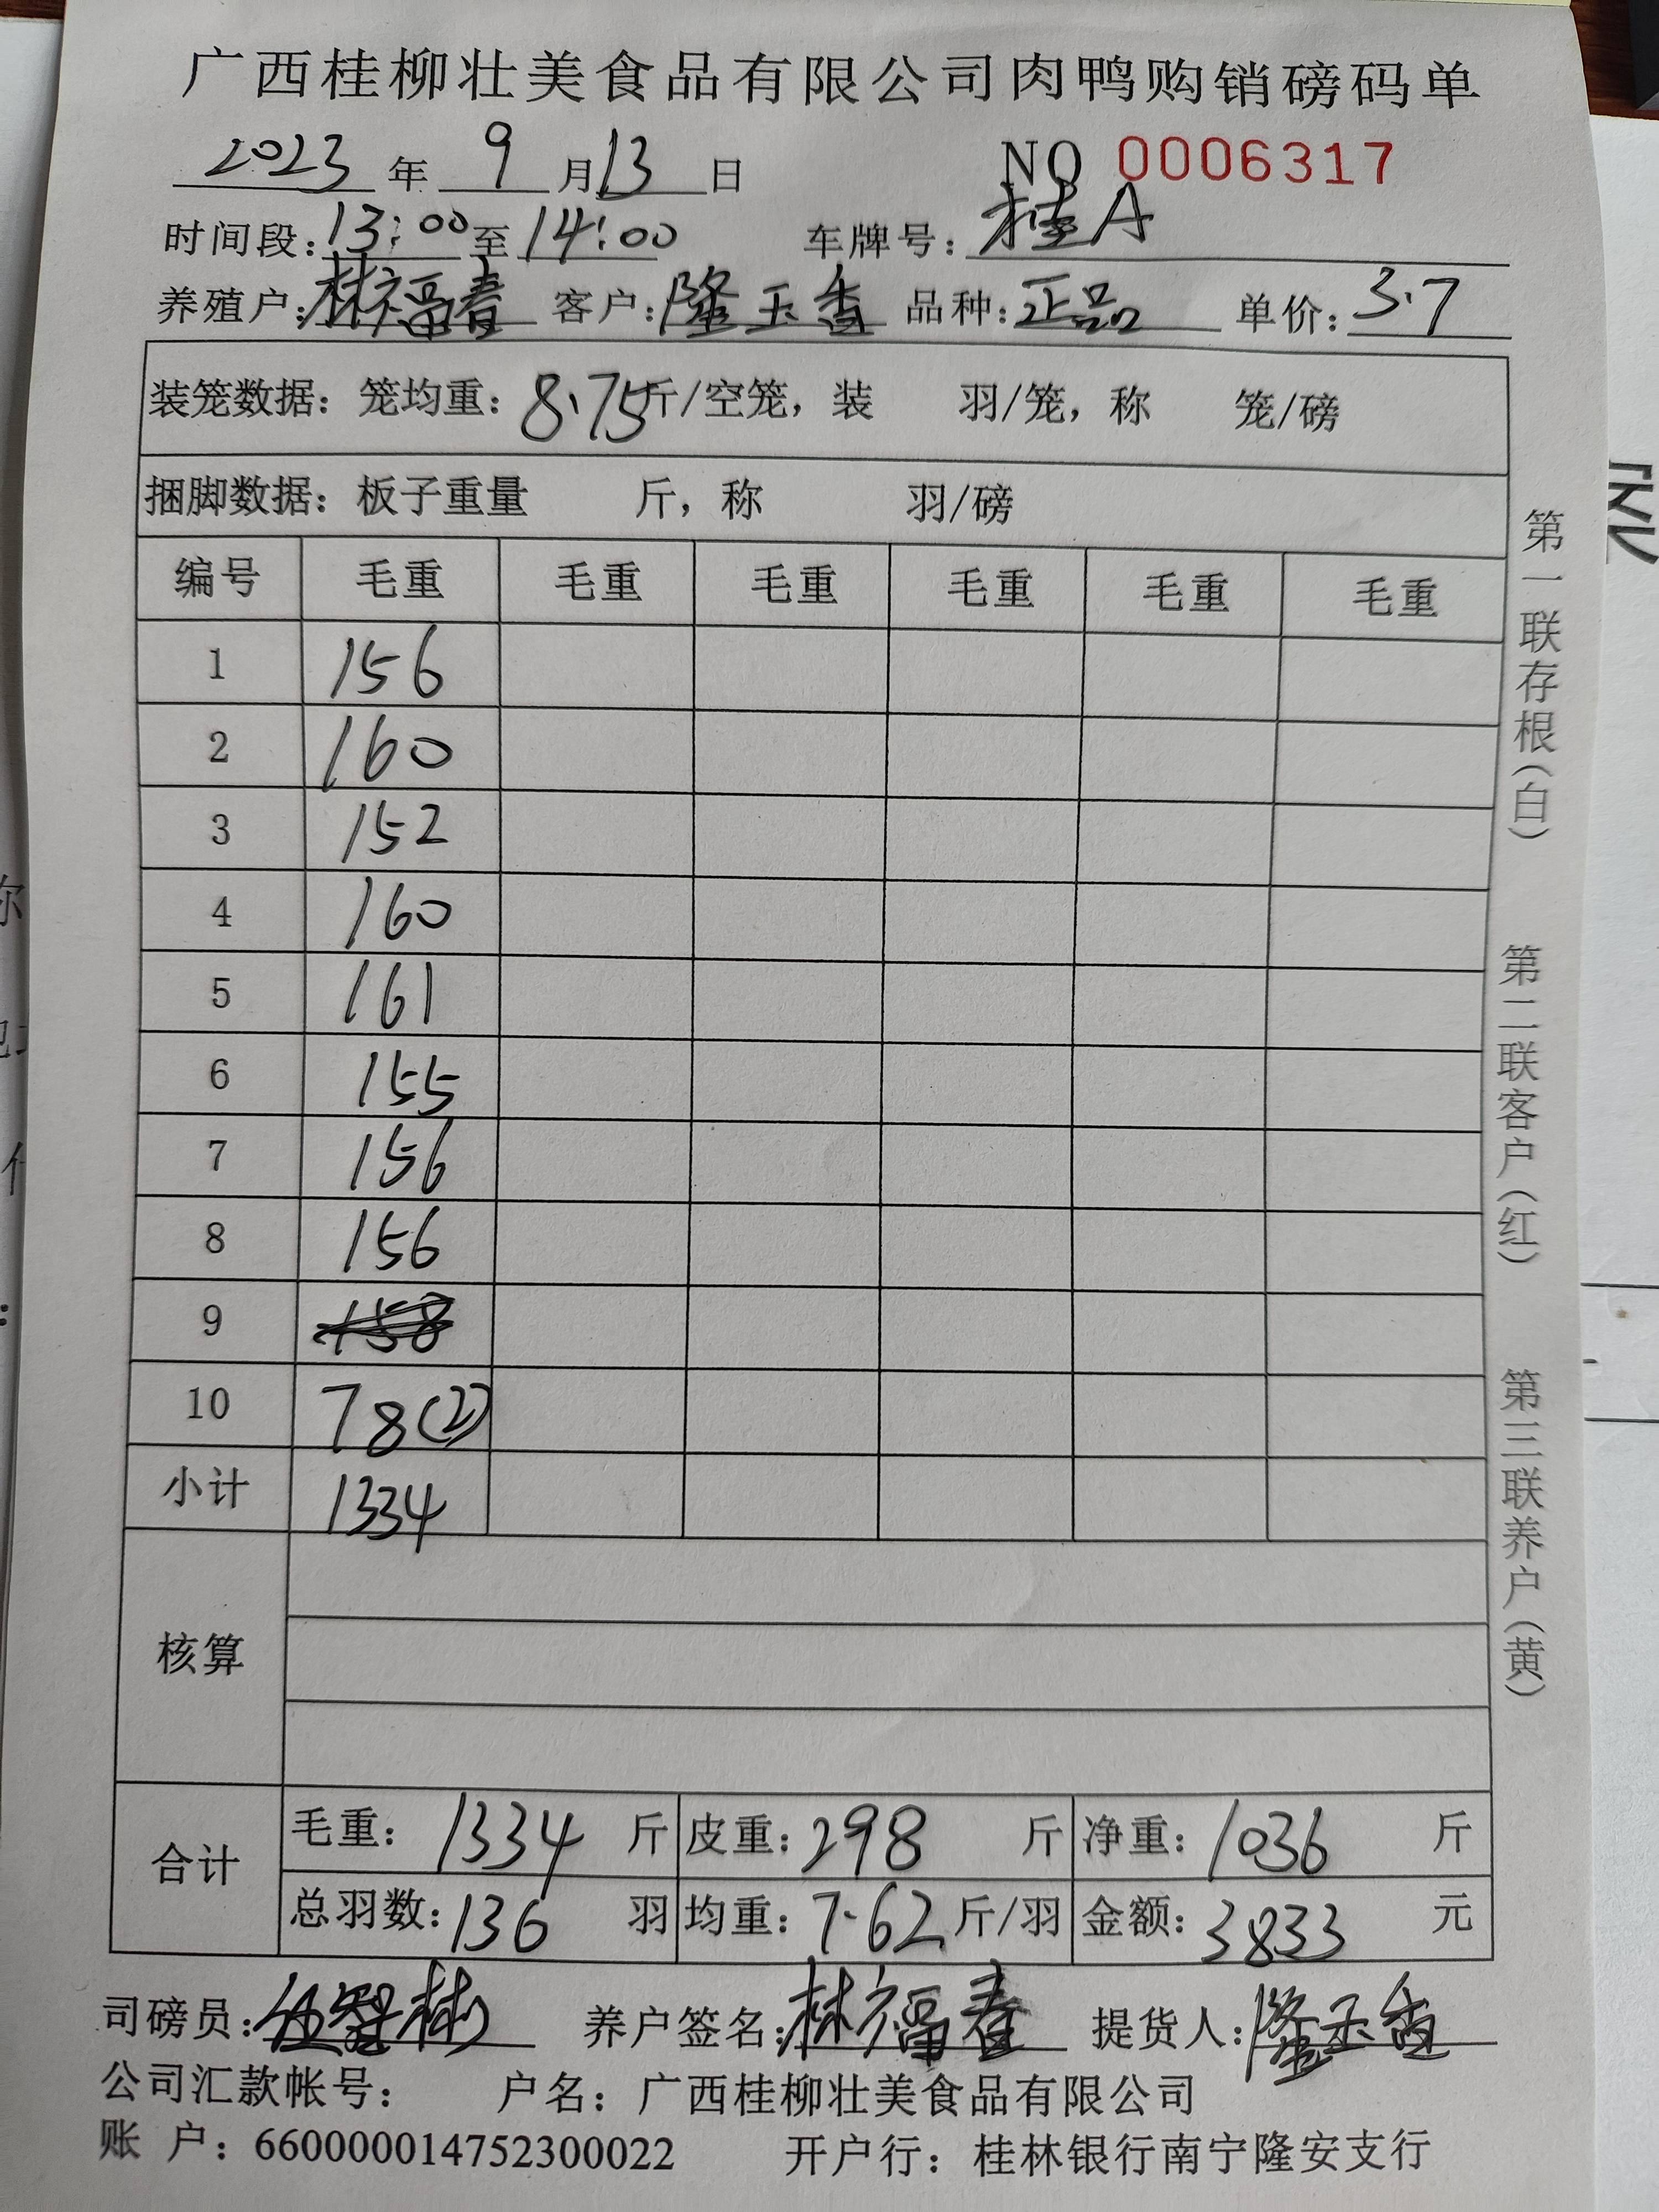 广西桂柳壮美食品有限公司肉鸭购销磅码单
2023 年 9 月 13 日 NO 0006317
时间段: 13:00 至 14:00 车牌号: 桂A
养殖户: 林福春 客户: 隆玉香 品种: 正品 单价: 3.7
装笼数据: 笼均重: 8.75 斤/空笼, 装 羽/笼, 称 笼/磅
捆脚数据: 板子重量 斤, 称 羽/磅
编号 毛重 毛重 毛重 毛重 毛重 毛重
1 156
2 160
3 152
4 160
5 161
6 155
7 156
8 156
9 158
10 78(2)
小计 1334
核算
合计 毛重: 1334 斤 皮重: 298 斤 净重: 1036 斤
总羽数: 136 羽 均重: 7.62 斤/羽 金额: 3833 元
司磅员: 养户签名: 林福春 提货人: 隆玉香
公司汇款帐号: 户名: 广西桂柳壮美食品有限公司
账 户: 660000014752300022 开户行: 桂林银行南宁隆安支行
第一联存根(白)
第二联客户(红)
第三联养户(黄)